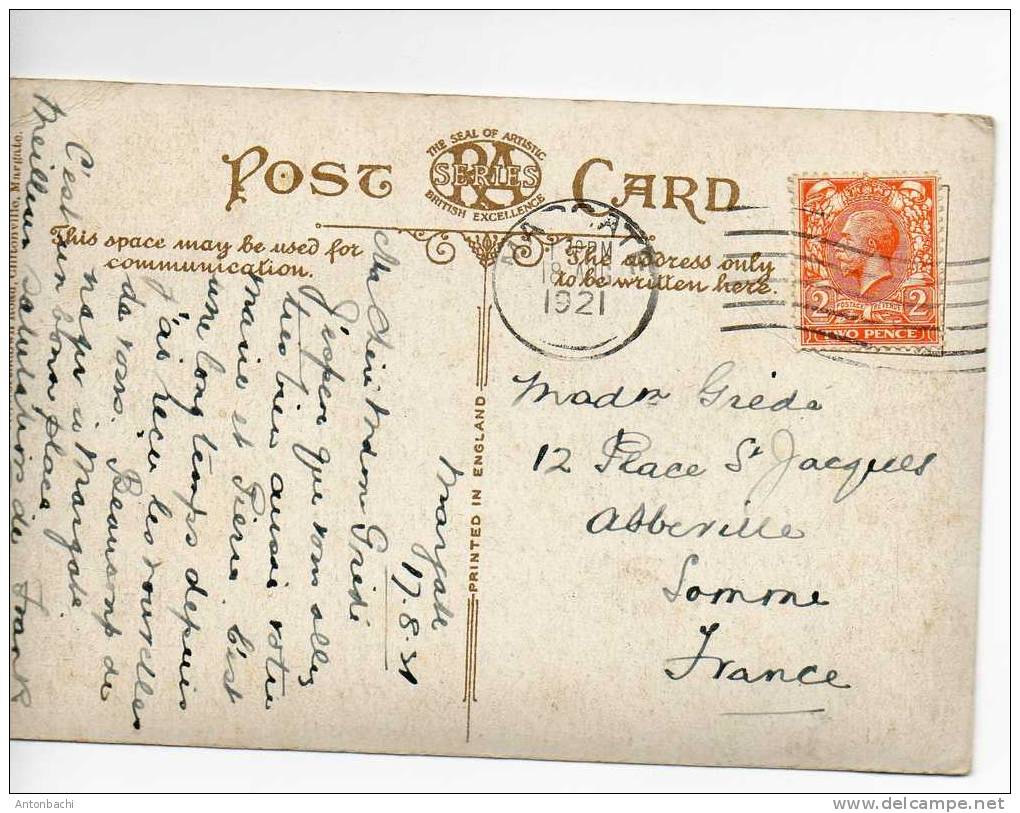 POST CARD
THE SEAL OF ARTISTIC
RA
SERIES
BRITISH EXCELLENCE
This space may be used for
communication.
The address only
to be written here.
MARGATE
PM
18 AUG
1921
2 2
POSTAGE REVENUE
TWO PENCE
PRINTED IN ENGLAND
Margate
17.8.21
Ma Chère Madam Griédé
J'esper que vous allez
tres bien aussi votre
marie et Piere. C'est
une long temps depuis
J'ai reçu les nouvelles
de vous. Beaucoup de
neger à Margate.
C'est un bon place
Meilleur salutation de Frank
Madm Griédé
12 Place St Jacques
Abbeville
Somme
France
Cliftonville, Margate.
Antonbachi
www.delcampe.net